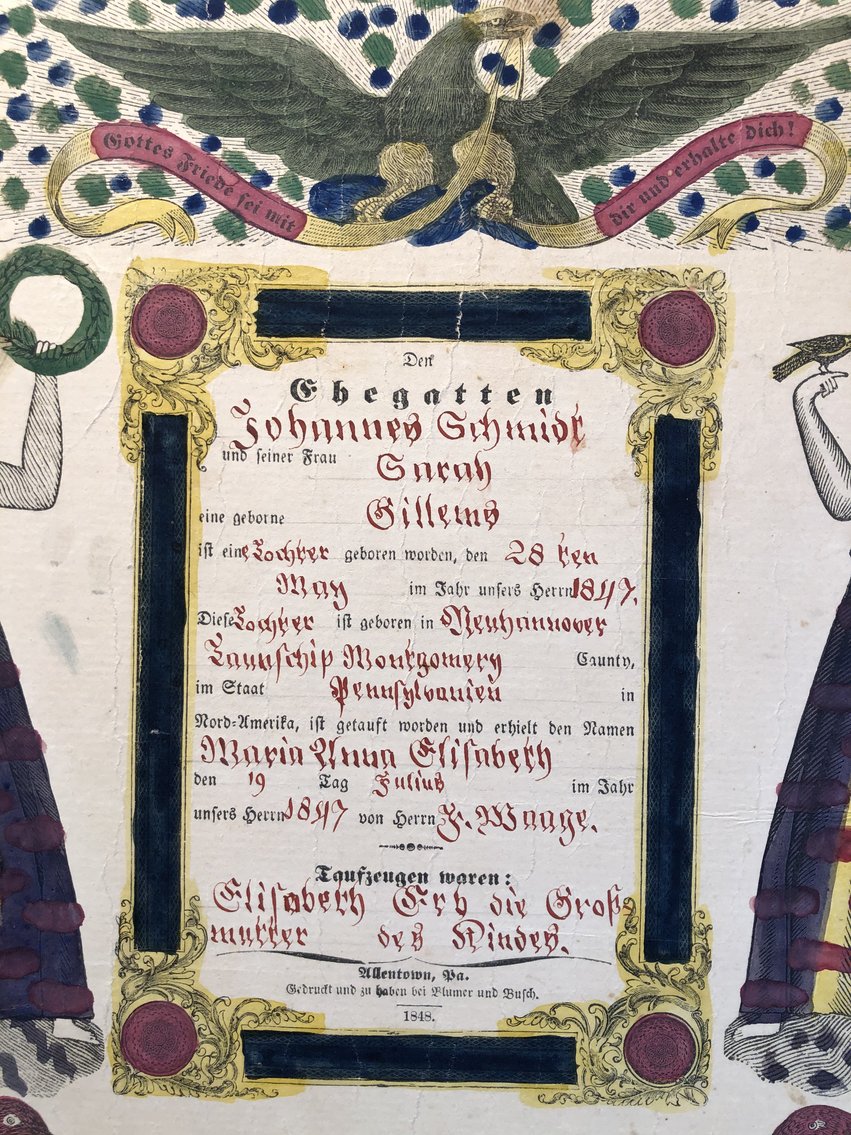 Gottes Friede sei mit
dir und erhalte dich!
Den
Ehegatten
Johannes Schmidt
und seiner Frau Sarah
eine geborne Gillems
ist eine Tochter geboren worden, den 28 ten
May im Jahr unsers Herrn 1847.
Diese Tochter ist geboren in Neuhannover
Taunschip Montgomery Caunty,
im Staat Pennsylvanien in
Nord-Amerika, ist getauft worden und erhielt den Namen
Maria Anna Elisabeth
den 19 Tag Julius im Jahr
unsers Herrn 1847 von Herrn F. Waage.
Taufzeugen waren:
Elisabeth Erb die Groß-
mutter des Kindes.
Allentown, Pa.
Gedruckt und zu haben bei Blumer und Busch.
1848.